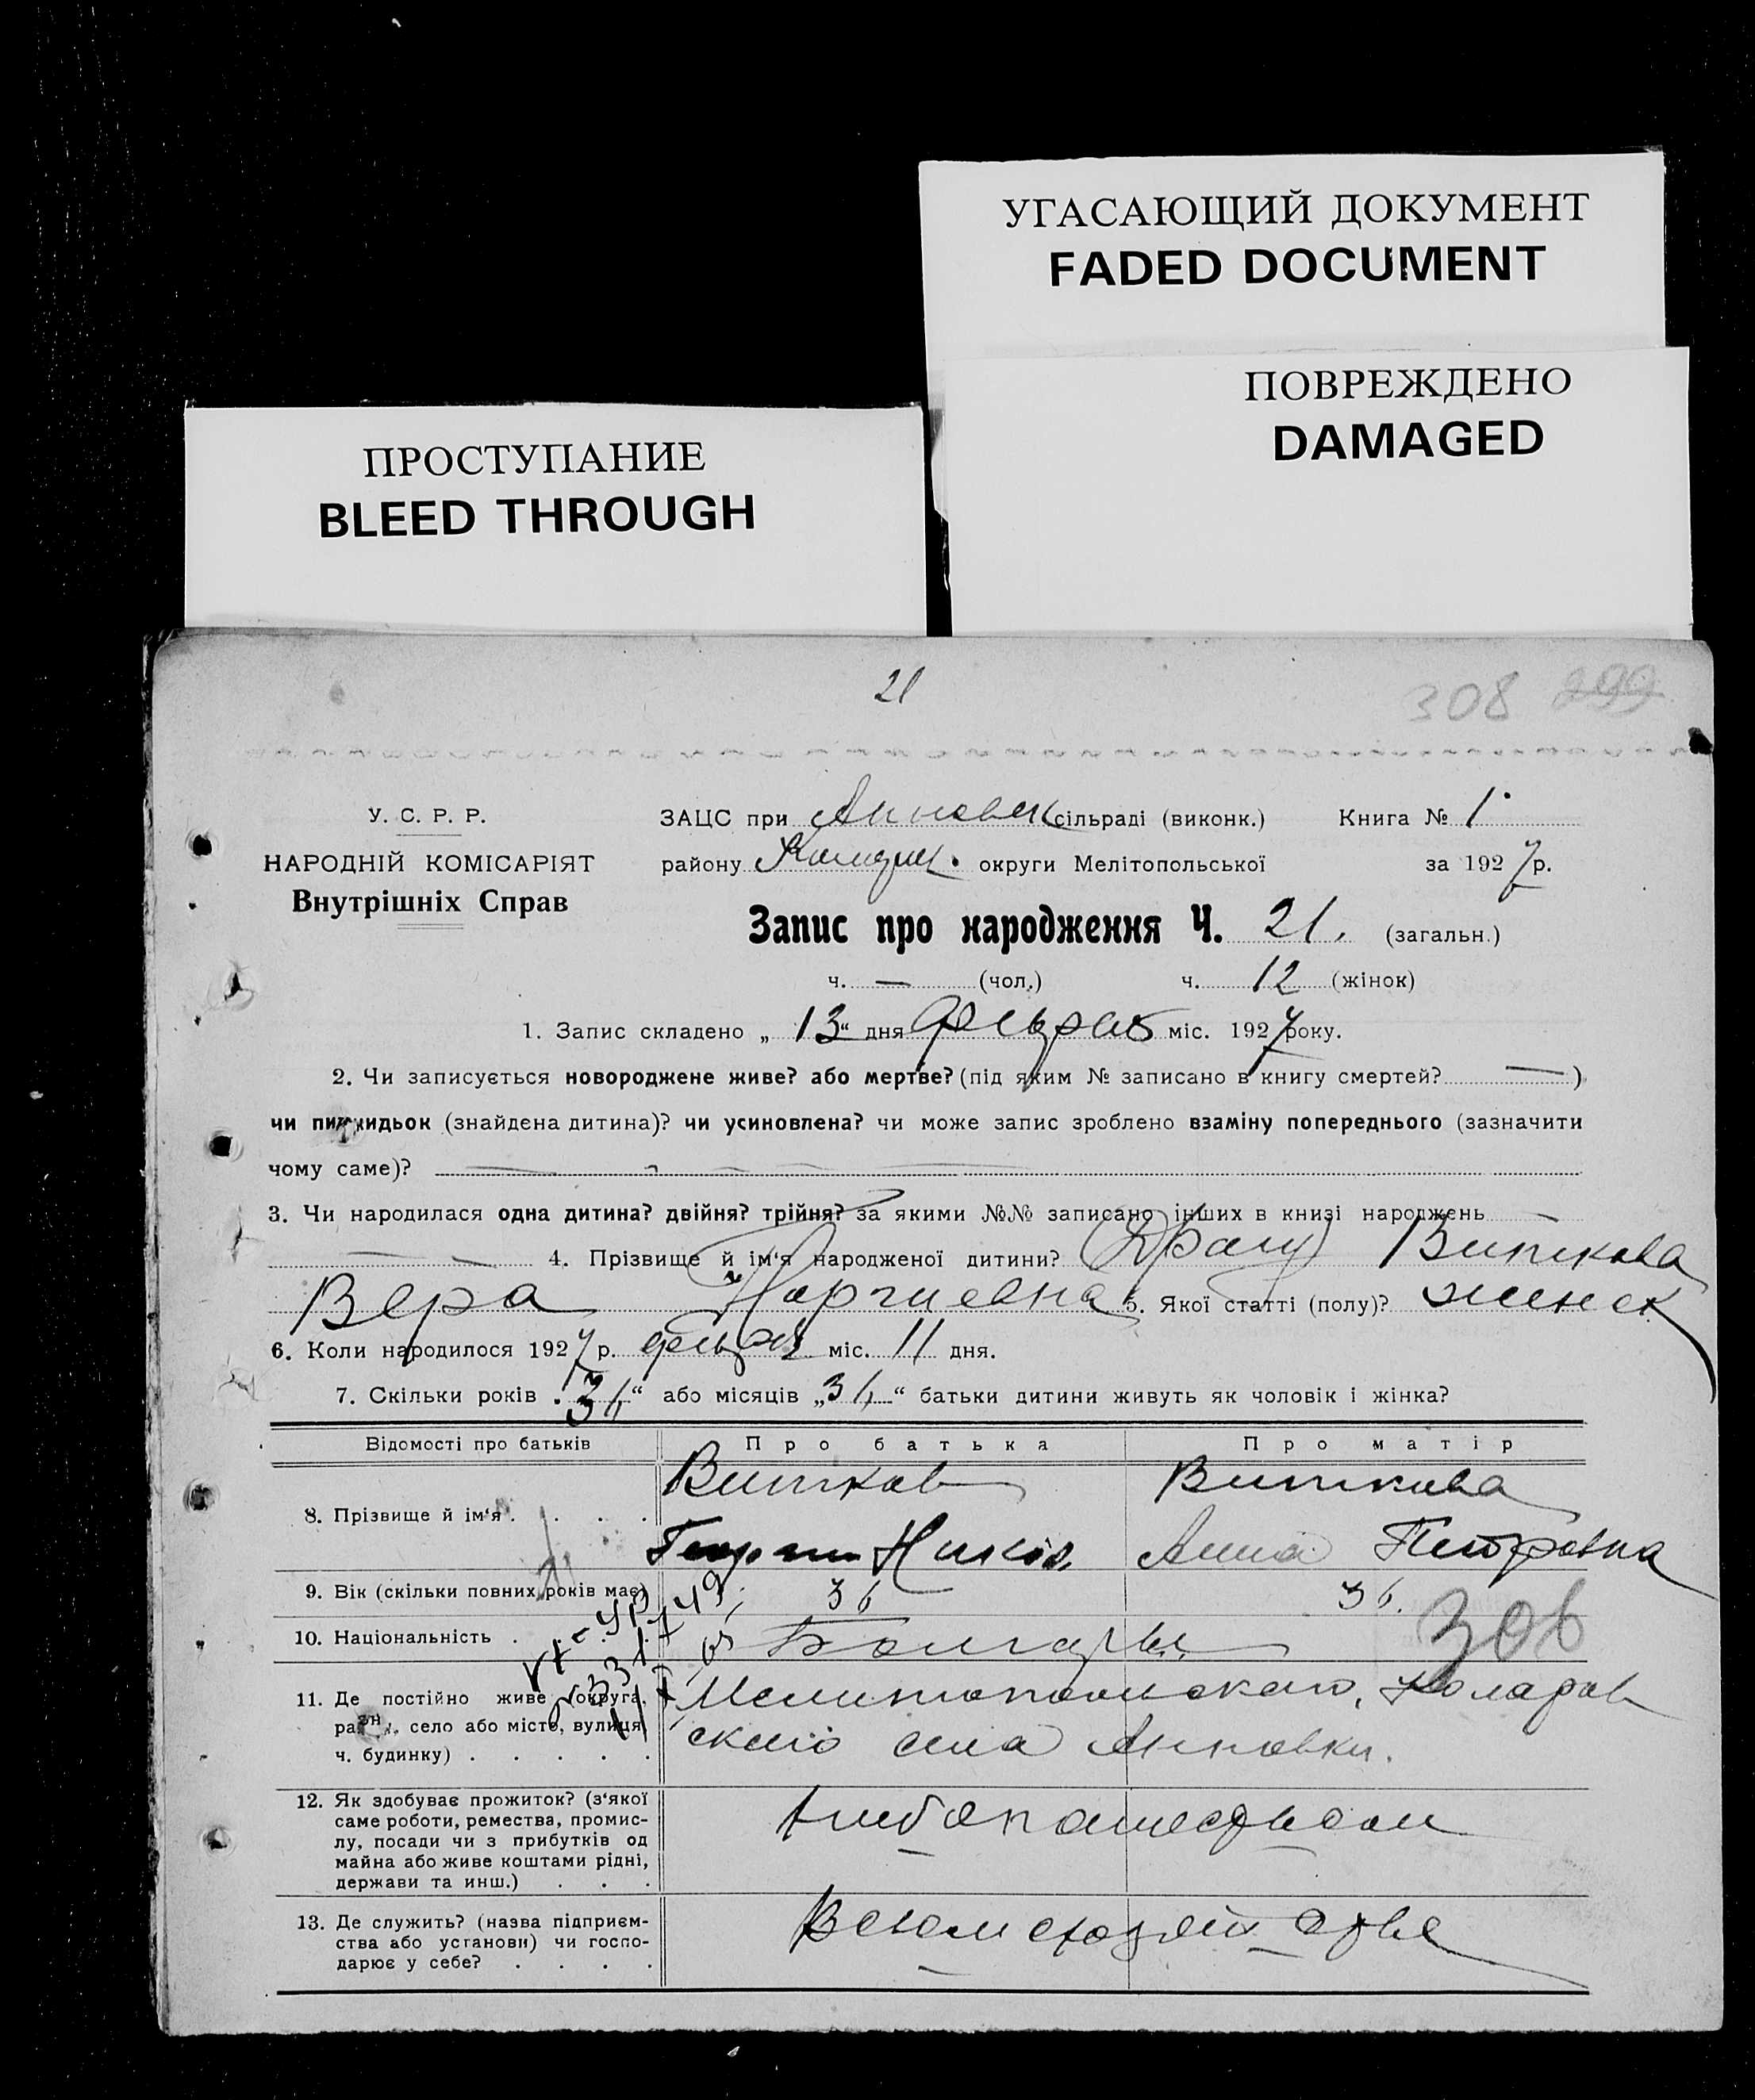 УГАСАЮЩИЙ ДОКУМЕНТ
FADED DOCUMENT
ПОВРЕЖДЕНО
DAMAGED
ПРОСТУПАНИЕ
BLEED THROUGH
21
308 299
У. С. Р. Р.
НАРОДНІЙ КОМІСАРІЯТ
Внутрішніх Справ
ЗАЦС при Анновск сільраді (виконк.) Книга № 1
району округи Мелітопольської за 1927 р.
Запис про народження Ч. 21. (загальн.)
ч. — (чол.) ч. 12 (жінок)
1. Запис складено „ 13 “ дня міс. 1927 року.
2. Чи записується новороджене живе? або мертве? (під яким № записано в книгу смертей? — )
чи підкидьок (знайдена дитина)? чи усиновлена? чи може запис зроблено взаміну попереднього (зазначити
чому саме)?
3. Чи народилася одна дитина? двійня? трійня? за якими №№ записано інших в книзі народжень —
4. Прізвище й ім'я народженої дитини? Виткова
Вера 5. Якої статті (полу)? жинск
6. Коли народилося 1927 р. міс. 11 дня.
7. Скільки років „ “ або місяців „ “ батьки дитини живуть як чоловік і жінка?
Відомості про батьків Про батька Про матір
8. Прізвище й ім'я . . . . Витков Виткова
Георгий Никол. Анна Петровна
9. Вік (скільки повних років має) 36 36.
10. Національність . Болгары 306
11. Де постійно живе (округа, Мелитопольского, Коларов
район, село або місто, вулиця, ского села Анновки.
ч. будинку) . . . . .
12. Як здобуває прожиток? (з'якої
саме роботи, ремества, промис-
лу, посади чи з прибутків од
майна або живе коштами рідні,
держави та инш.) . . .
хлибопашеством
13. Де служить? (назва підприєм-
ства або установи) чи госпо-
дарює у себе? . . . .
В свом хозяйстве